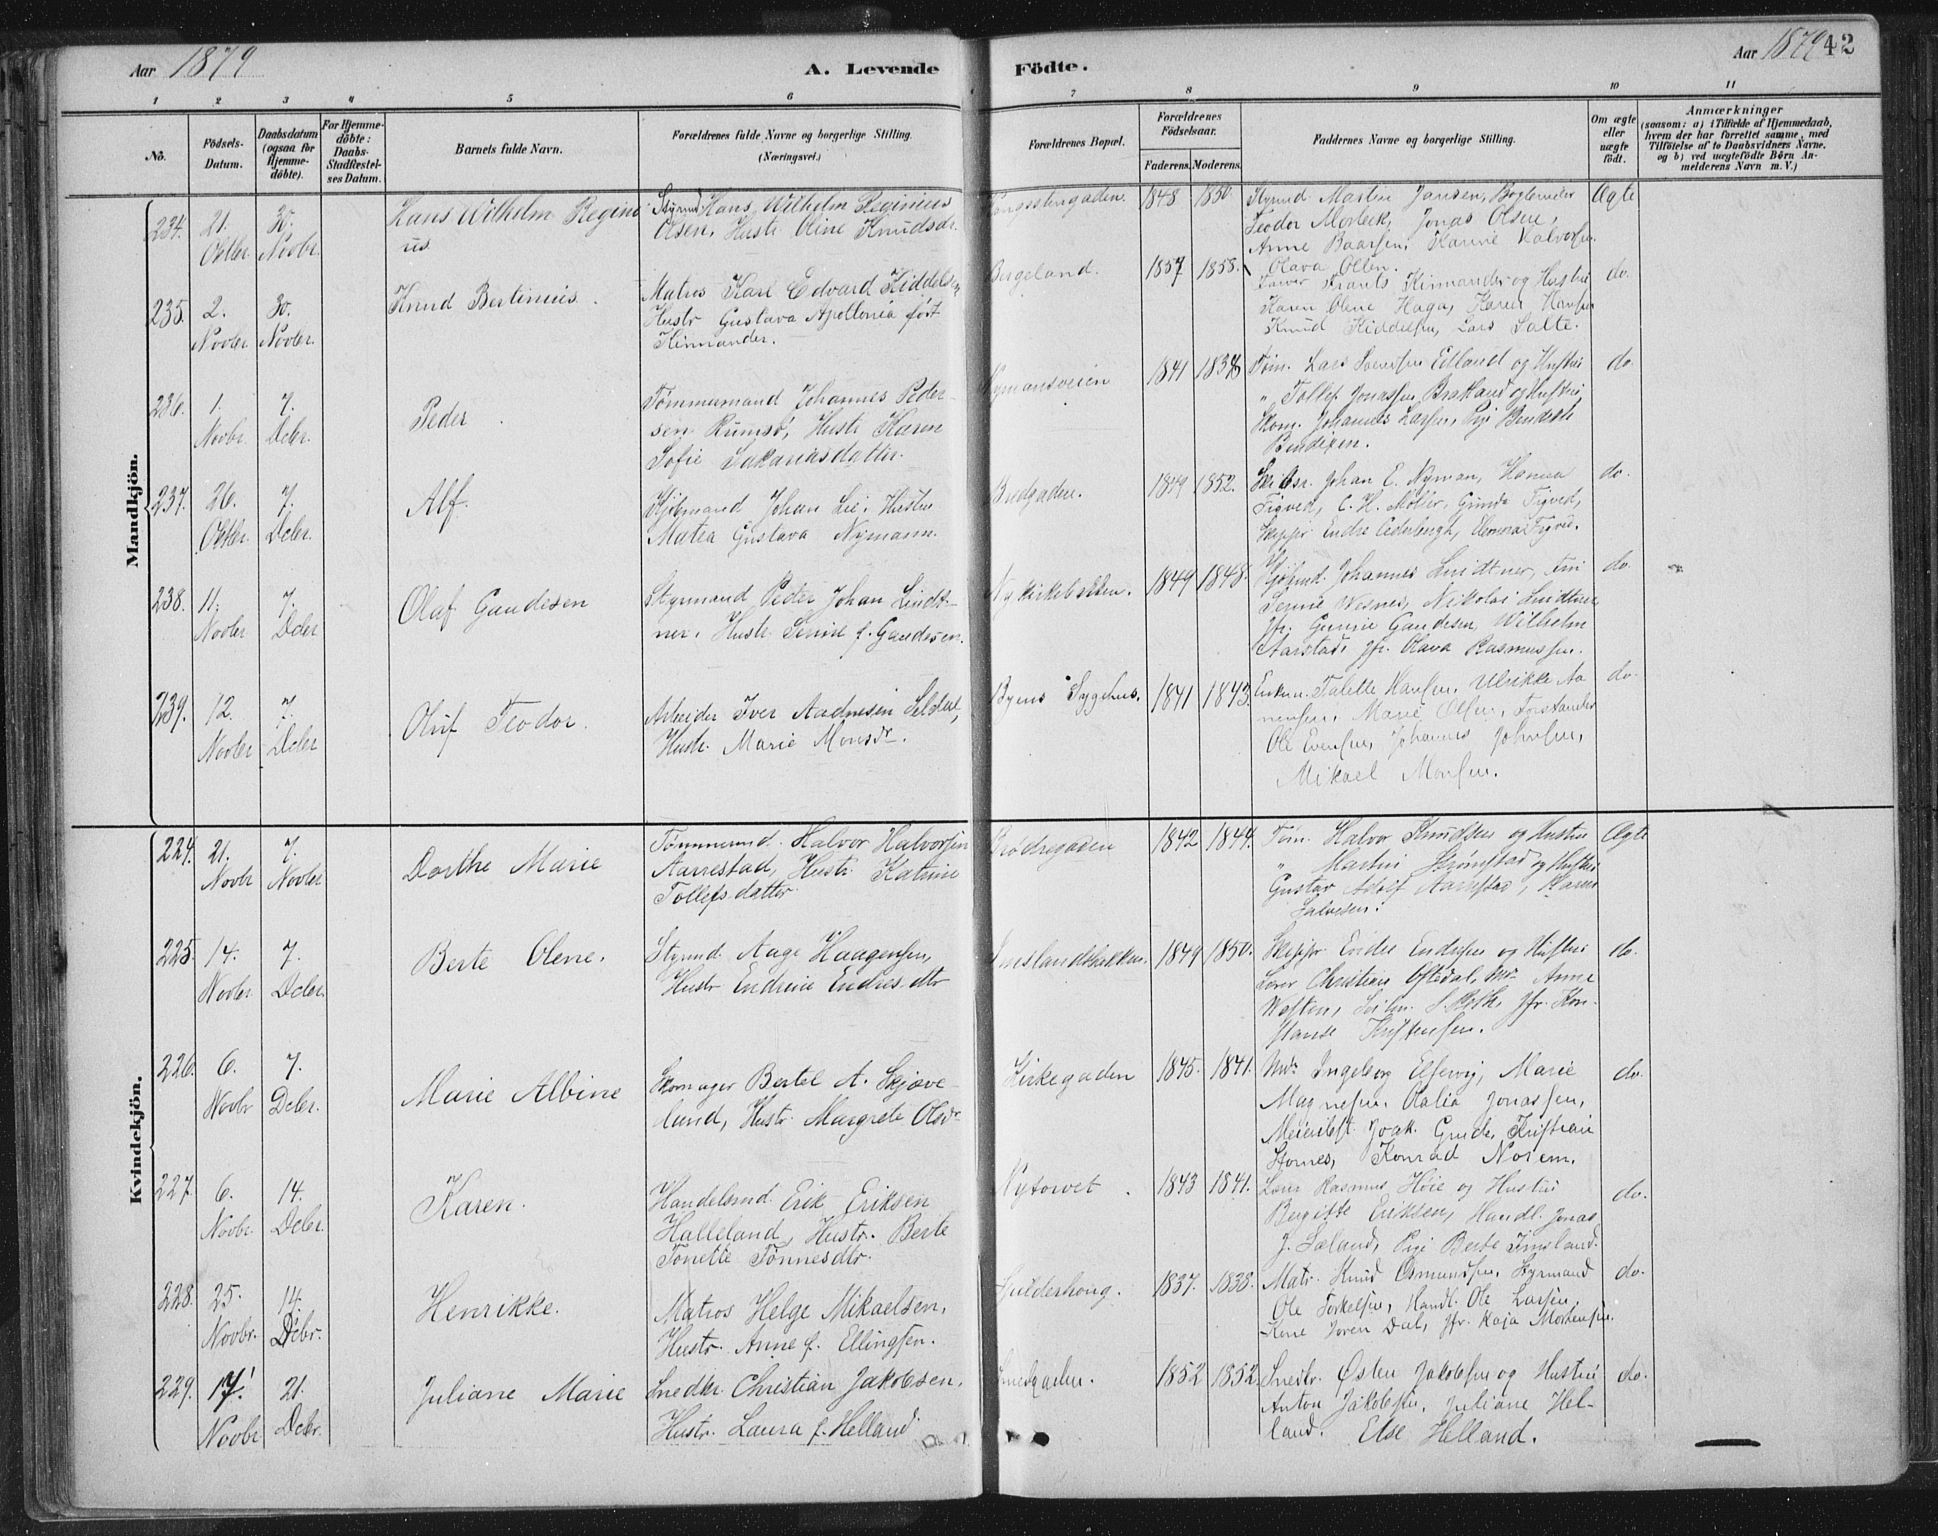 Aar 1879
A. Levende
Födte.
Aar 1879
42
1 2 3 4 5 6 7 8 9 10 11
No.
Födsels-
Datum.
Daabsdatum
(ogsaa for
Hjemme-
döbte).
For Hjemme-
döbte:
Daabs-
Stadfestel-
ses Datum.
Barnets fulde Navn.
Forældrenes fulde Navne og borgerlige Stilling.
(Næringsvei.)
Forældrenes Bopæl.
Forældrenes
Födselsaar.
Faderens. Moderens.
Faddernes Navne og borgerlige Stilling.
Om ægte
eller
uægte
födt.
Anmærkninger
(saasom: a) i Tilfælde af Hjemmedaab,
hvem der har forrettet samme, med
Tilföielse af to Daabsvidners Navne,
og b) ved uægtefödte Börn An-
melderens Navn m. V.)
Mandkjön.
234. 21. Oktbr. 30. Novbr.
Hans Wilhelm Regini-
us
Styrmd Hans Wilhelm Reginius
Olsen, Hustr. Oline Knudsdr.
Kongestengaden. 1848 1850
Styrmd Martin Jansen, Bogbinder
Teodor Morbeck, Jonas Olsen,
Anne Baarsen, Karine Halvorsen
Olava Olsen.
Ægte
235. 2. Novbr. 30. Novbr.
Knud Bertinius.
Matros Karl Edvard Kiddelsen
Hustr Gustava Apollonia født
Kinnander.
Bergeland. 1857 1858.
Farver Frants Kinnander og Hustru
Karen Olene Haga, Karen Hansen
Knud Kiddelsen, Lars Salte.
do.
236. 1. Novbr. 7. Dcbr.
Peder
Tømmermand Johannes Peder-
sen Rumsø, Hustr Karen
Sofie Sakariasdatter.
Nymansveien 1841 1838
Tøm. Lars Svensen Edland og Hustru
" Tollef Jonassen Bratland og Hustru,
Skom. Johannes Larsen, Pige Bendikte
Bendixen.
do.
237. 26. Oktbr. 7. Dcbr.
Alf.
Kjøbmand Johan Lie, Hustru
Matea Gustava Nymann.
Bredgaden. 1849 1852.
Skibsr. Johan E. Nyman, Hanna
Tigved, C. H. Møller, Gunda Tigved,
Skippr Endre Cederbergh, Elenora Tigve.
do.
238. 11. Novbr 7. Dcbr
Olaf Gaudesen
Styrmand Peder Johan Lindt-
ner, Hustr. Serine f. Gaudesen.
Nykirkebakken. 1849 1848.
Kjøbmd. Johannes Lindtner, Fru
Serine Wesnes, Nikolai Lindtner
Jfr. Gunnie Gaudesen, Wilhelm
Aarstad, Jfr. Olava Rasmussen.
do.
239. 12. Novbr 7. Dcbr
Oluf Teodor.
Arbeider Iver Aadnesen Selstad,
Hustr. Marie Monsdr.
Byens Sygehus. 1841 1843.
Enken Talette Hansen, Ulrikke Aa-
nensen, Marie Olsen, Forstander
Ole Evensen, Johannes Johnsen,
Mikael Monsen.
do.
Kvindekjön.
224. 21. Novbr 7. Novbr
Dorthe Marie
Tømmermd. Halvor Halvorsen
Aarrestad, Hustr. Katrine
Tollefsdatter
Brødregaden 1842 1844.
Tøm. Halvor Knudsen og Hustru
" Martin Strømstad og Hustru
Gustav Adolf Aarrestad, Karen
Salvesen.
Ægte
225. 14. Novbr 7. Dcbr.
Berte Olene.
Styrmd Aage Haagensen,
Hustr Endrine Endresdtr
Imslandbakken. 1849 1850.
Skippr Endre Endresen og Hustru
Lærer Christian Oftedal, Md. Anne
Wasten, Seilm. S. Roth, Jfr. Kon-
stanse Kristensen.
do.
226. 6. Novbr 7. Dcbr.
Marie Albine
Skomager Bertel A. Skjæve-
land, Hustr. Margrete Olsdr
Kirkegaden 1845. 1841.
Md. Ingeborg Elfevig, Marie
Magnesen, Olalia Jonassen,
Meieribest. Joak. Grude, Kristian
Stornes, Konrad Norem.
do.
227. 6. Novbr. 14. Dcbr.
Karen.
Handelsmd. Erik Eriksen
Halleland, Hustr. Berte
Tonette Tønnesdtr.
Nytorvet. 1843 1841.
Lærer Rasmus Høie og Hustru
Bergitte Eriksen, Handl. Jonas
J. Sæland, Pige Berte Imsland.
do.
228. 25. Novbr. 14. Dcbr.
Henrikke.
Matros Helge Mikaelsen,
Hustr. Anne f. Ellingsen.
1837. 1838.
Matr. Knud Osmundsen, Styrmand
Ole Torkelsen, Handl. Ole Larsen,
Kone Joren Dal, Jfr. Kaja Mortensen.
do.
229. 17. Novbr 21. Dcbr.
Juliane Marie
Snedkr. Christian Jakobsen,
Hustr. Laura f. Helland
Smedgaden. 1852 1852.
Snedkr. Østen Jakobsen og Hustru
Anton Jakobsen, Juliane Hel-
land. Else Helland.
do.